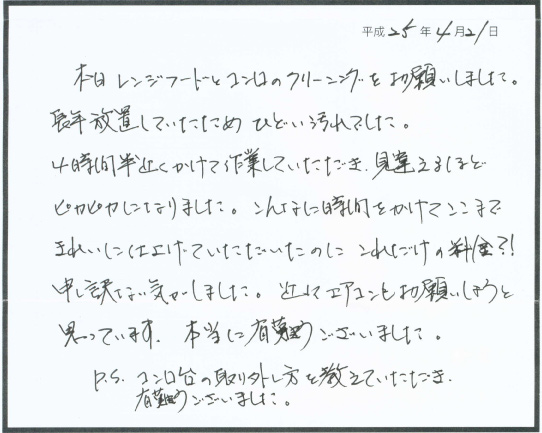 平成25年4月21日
本日レンジフードとコンロのクリーニングをお願いしました。
長年放置していたため ひどい汚れでした。
4時間半近くかけて作業していただき、見違えるほど
ピカピカになりました。こんなに時間をかけてここまで
きれいに仕上げていただいたのに これだけの料金?!
申し訳ない気がしました。近々エアコンもお願いしようと
思っています。本当に有難うございました。
P.S. コンロ台の取り外し方を教えていただき、
有難うございました。